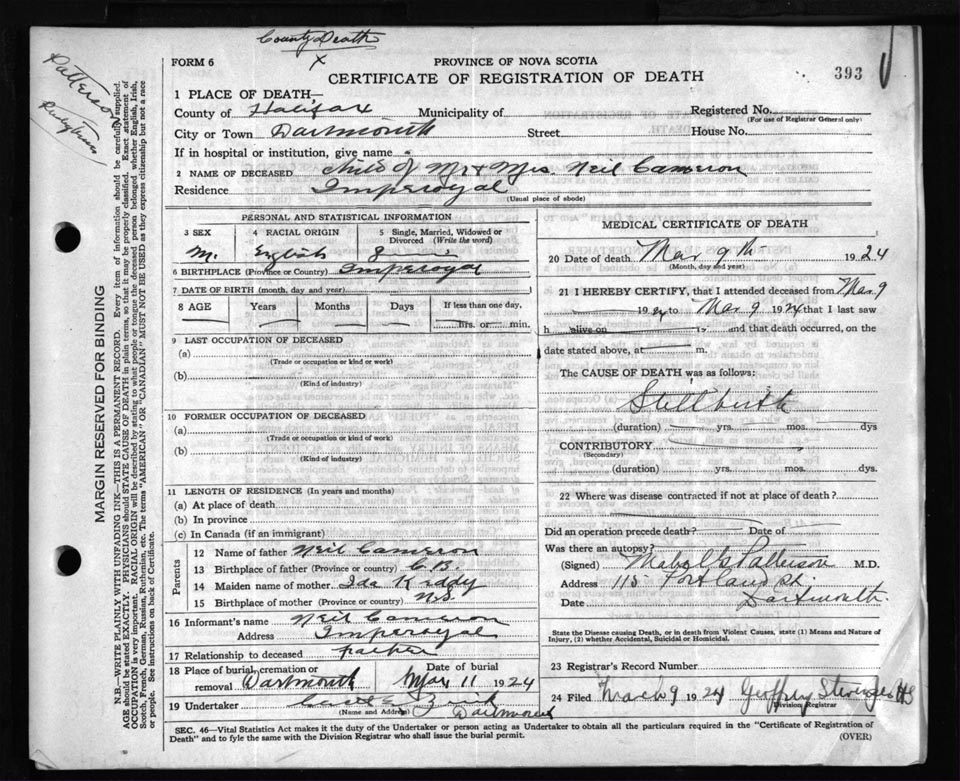 County Death
x
FORM 6 PROVINCE OF NOVA SCOTIA 393
CERTIFICATE OF REGISTRATION OF DEATH
1 PLACE OF DEATH—
County of Halifax Municipality of Registered No.
(For use of Registrar General only)
City or Town Dartmouth Street House No.
If in hospital or institution, give name
2 NAME OF DECEASED Child of Mr & Mrs. Neil Cameron
Residence Imperoyal
(Usual place of abode)
PERSONAL AND STATISTICAL INFORMATION
3 SEX 4 RACIAL ORIGIN 5 Single, Married, Widowed or Divorced (Write the word)
M. English S
6 BIRTHPLACE (Province or Country) Imperoyal
7 DATE OF BIRTH (month, day and year)
8 AGE Years Months Days If less than one day,
hrs. or min.
9 LAST OCCUPATION OF DECEASED
(a)
(Trade or occupation or kind or work)
(b)
(Kind of industry)
10 FORMER OCCUPATION OF DECEASED
(a)
(Trade or occupation or kind of work)
(b)
(Kind of industry)
11 LENGTH OF RESIDENCE (In years and months)
(a) At place of death
(b) In province
(c) In Canada (if an immigrant)
Parents
12 Name of father Neil Cameron
13 Birthplace of father (Province or country) C.B.
14 Maiden name of mother Ida Kiddy
15 Birthplace of mother (Province or country) N.S.
16 Informant's name Neil Cameron
Address Imperoyal
17 Relationship to deceased father
18 Place of burial, cremation or Date of burial
removal Dartmouth Mar 11 1924
19 Undertaker
(Name and Address) Dartmouth
MEDICAL CERTIFICATE OF DEATH
20 Date of death Mar 9th 1924
(Month, day and year)
21 I HEREBY CERTIFY, that I attended deceased from Mar. 9
1924 to Mar 9 1924 that I last saw
h alive on 19 and that death occurred, on the
date stated above, at m.
The CAUSE OF DEATH was as follows:
Stillbirth
(duration) yrs. mos. dys
CONTRIBUTORY
(Secondary)
(duration) yrs. mos. dys.
22 Where was disease contracted if not at place of death?
Did an operation precede death? Date of
Was there an autopsy?
(Signed) Mabel G Patterson M.D.
Address 115 Portland St.
Date Dartmouth.
State the Disease causing Death, or in death from Violent Causes, state (1) Means and Nature of
Injury, (2) whether Accidental, Suicidal or Homicidal.
23 Registrar's Record Number
24 Filed March 9 1924 Geoffrey Stevens
Division Registrar
SEC. 46—Vital Statistics Act makes it the duty of the Undertaker or person acting as Undertaker to obtain all the particulars required in the "Certificate of Registration of
Death" and to fyle the same with the Division Registrar who shall issue the burial permit.
(OVER)
Patterson
MARGIN RESERVED FOR BINDING
N.B.—WRITE PLAINLY WITH UNFADING INK—THIS IS A PERMANENT RECORD. Every item of information should be carefully supplied.
AGE should be stated EXACTLY. PHYSICIANS should STATE CAUSE OF DEATH in plain terms, so that it may be properly classified. Exact statement of
OCCUPATION is very important. RACIAL ORIGIN will be described by stating to what people or tongue the deceased person belonged whether English, Irish,
Scotch, French, German, Russian, Ruthenian, etc. The terms "AMERICAN" OR "CANADIAN" MUST NOT BE USED as they express citizenship but not a race
or people. See instructions on back of Certificate.